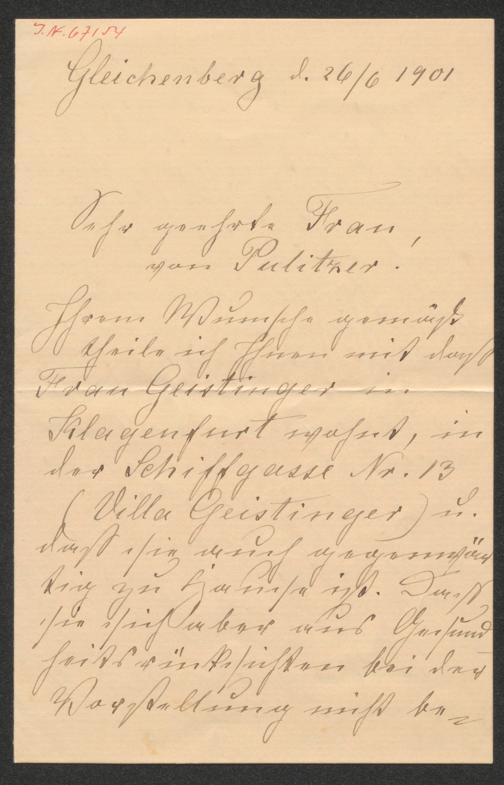 J.N. 67154
Gleichenberg d. 26/6 1901
Sehr geehrte Frau,
von Pulitzer.
Ihrem Wunsche gemäß
theile ich Ihnen mit daß
Frau Geistinger in
Klagenfurt wohnt, in
der Schiffgasse Nr. 13
(Villa Geistinger) u.
daß sie auch gegenwär
tig zu Hause ist. Daß
sie sich aber aus Gesund
heitsrücksichten bei der
Vorstellung nicht be=